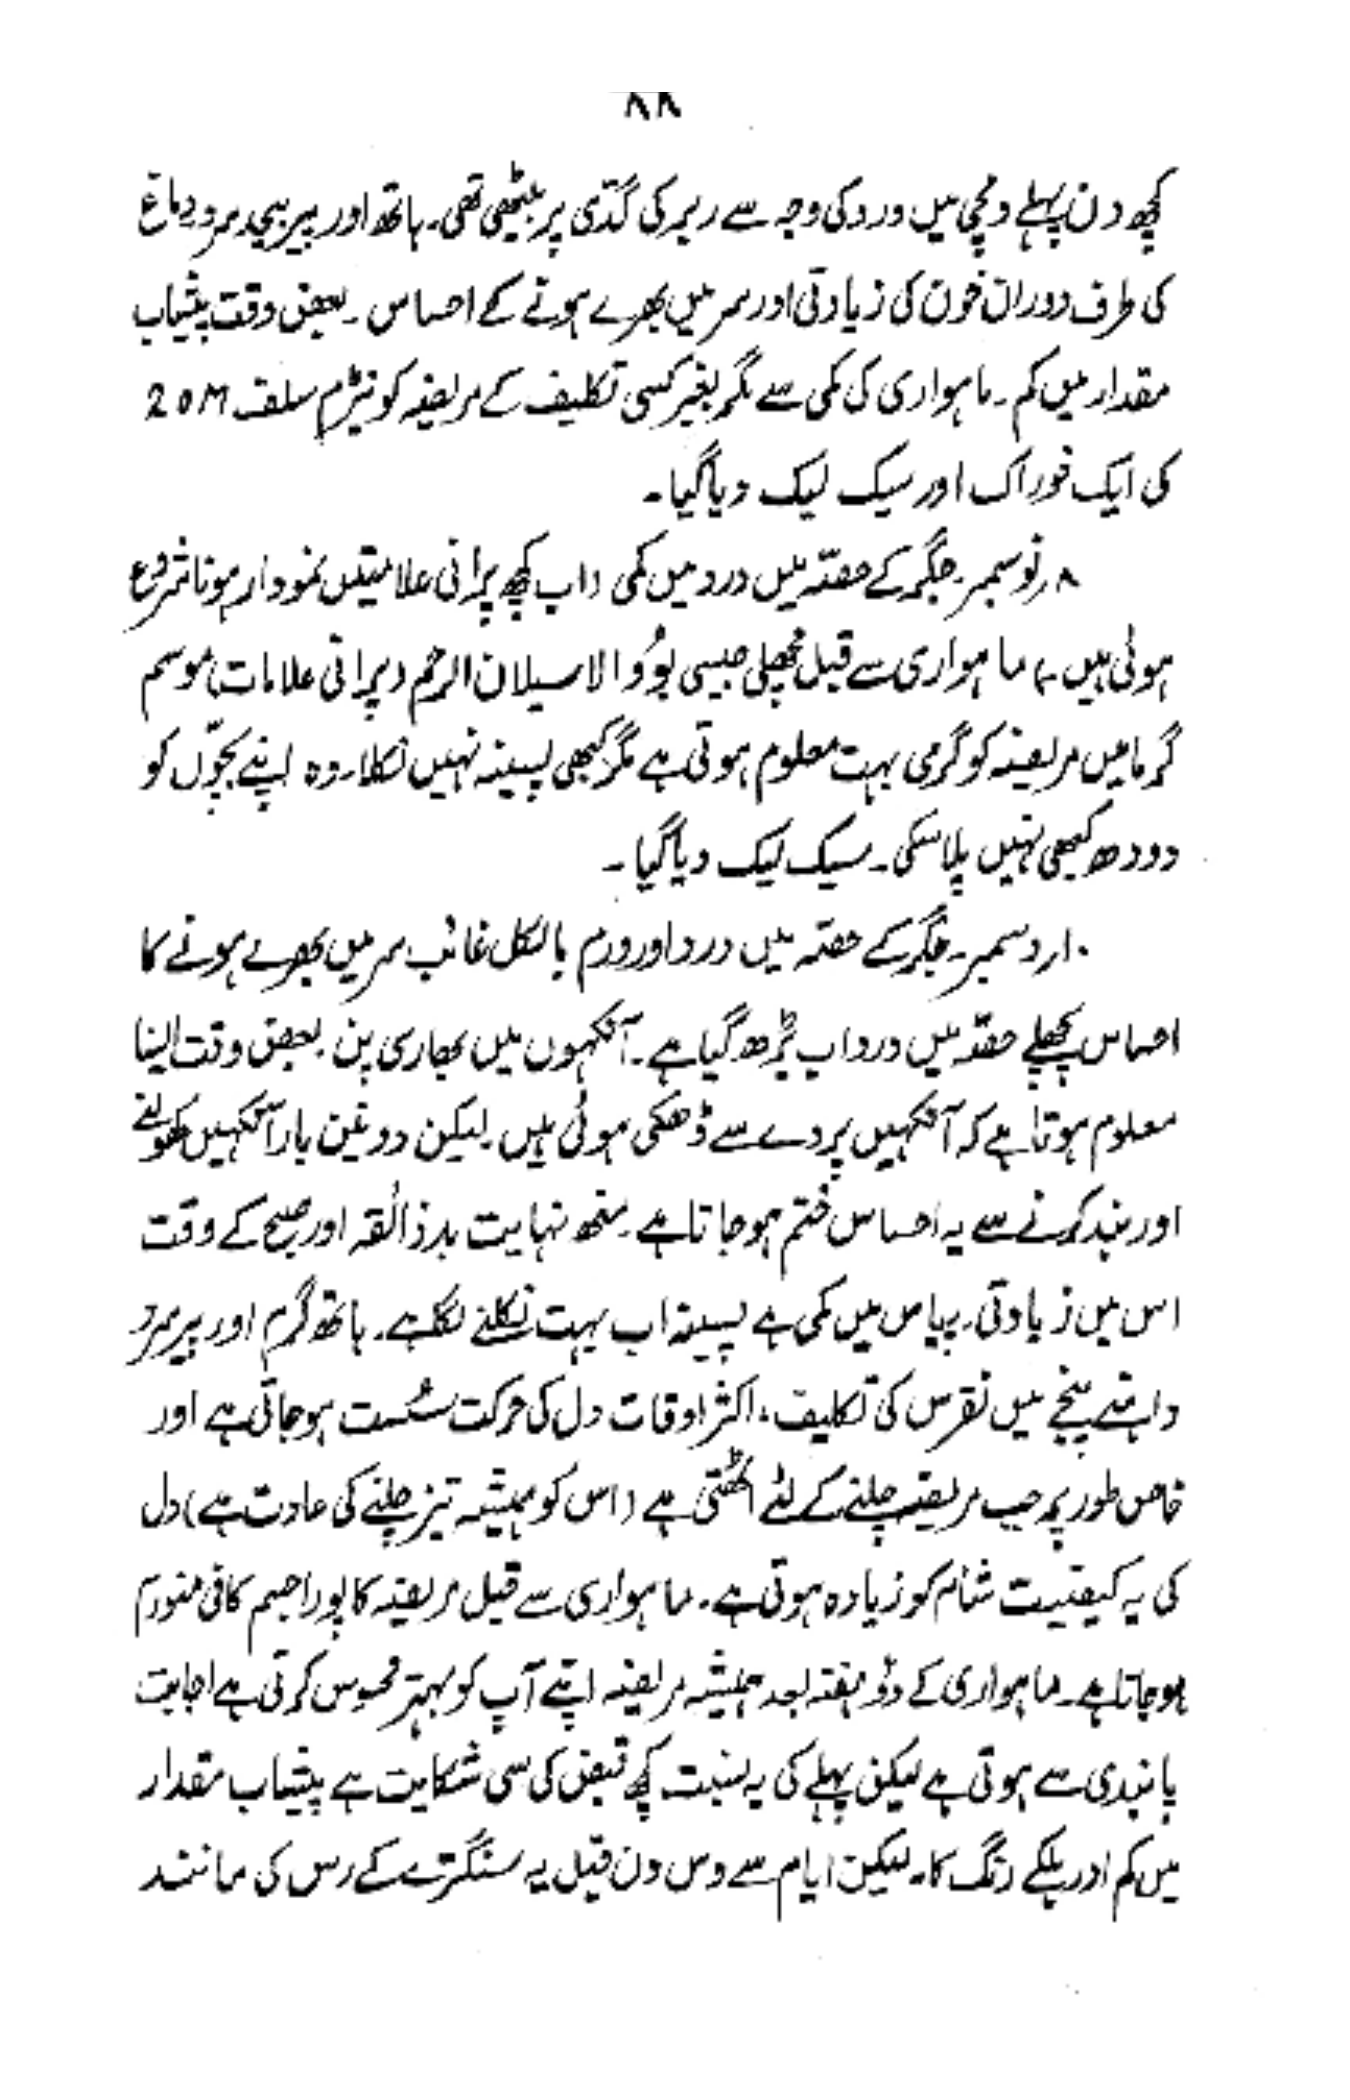 ۸۸
کچھ دن پہلے دمچی میں درد کی وجہ سے ربر کی گدّی پر بیٹھی تھی۔ ہاتھ اور پیر بیحد سرد دماغ
کی طرف دوران خون کی زیادتی اور سر میں بھرے ہونے کے احساس ۔ بعض وقت پیشاب
مقدار میں کم ۔ ماہواری کی کمی سے مگر بغیر کسی تکلیف کے مریضہ کو نیٹرم سلف 20M
کی ایک خوراک اور سیک لیک دیا گیا ۔
۸ر نوسمبر ۔ جگر کے حصّہ میں درد میں کمی (اب کچھ پرانی علامیتیں نمودار ہونا شروع
ہوئی ہیں) ماہواری سے قبل مچھلی جیسی بوُ والا سیلان الرحم (پرانی علامات) موسم
گرما میں مریضہ کو گرمی بہت معلوم ہوتی ہے مگر کبھی پسینہ نہیں نکلا۔ وہ اپنے بچوّں کو
دودھ کبھی نہیں پلا سکی ۔ سیک لیک دیا گیا ۔
۱۰ر دسمبر ۔ جگر کے حصّہ میں درد اور ورم بالکل غائب سر میں بھرے ہونے کا
احساس پچھلے حصّہ میں درد اب بڑھ گیا ہے ۔ آنکھوں میں بھاری پن ۔ بعض وقت ایسا
معلوم ہوتا ہے کہ آنکھیں پردے سے ڈھکی ہوئی ہیں ۔ لیکن دو تین بار آنکھیں کھولنے
اور بند کرنے سے یہ احساس ختم ہو جاتا ہے ۔ منھ نہایت بدذائقہ اور صبح کے وقت
اس میں زیادتی ۔ پیاس میں کمی ہے پسینہ اب بہت نکلنے لگا ہے ۔ ہاتھ گرم اور پیر سرد
داہنے پنجے میں نقرس کی تکلیف ، اکثر اوقات دل کی حرکت سُست ہو جاتی ہے اور
خاص طور پر جب مریضہ چلنے کے لئے اٹھتی ہے (اس کو ہمیشہ تیز چلنے کی عادت ہے) دل
کی یہ کیفیت شام کو زیادہ ہوتی ہے ۔ ماہواری سے قبل مریضہ کا پورا جسم کافی متورم
ہو جاتا ہے ۔ ماہواری کے دوُ ہفتہ بعد ہمیشہ مریضہ اپنے آپ کو بہتر محسوس کرتی ہے اجابت
پابندی سے ہوتی ہے لیکن پہلے کی بہ نسبت کچھ قبض کی سی شکایت ہے پیشاب مقدار
میں کم اور ہلکے رنگ کا۔ لیکن ایام سے دس دن قبل یہ سنگترے کے رس کی مانند